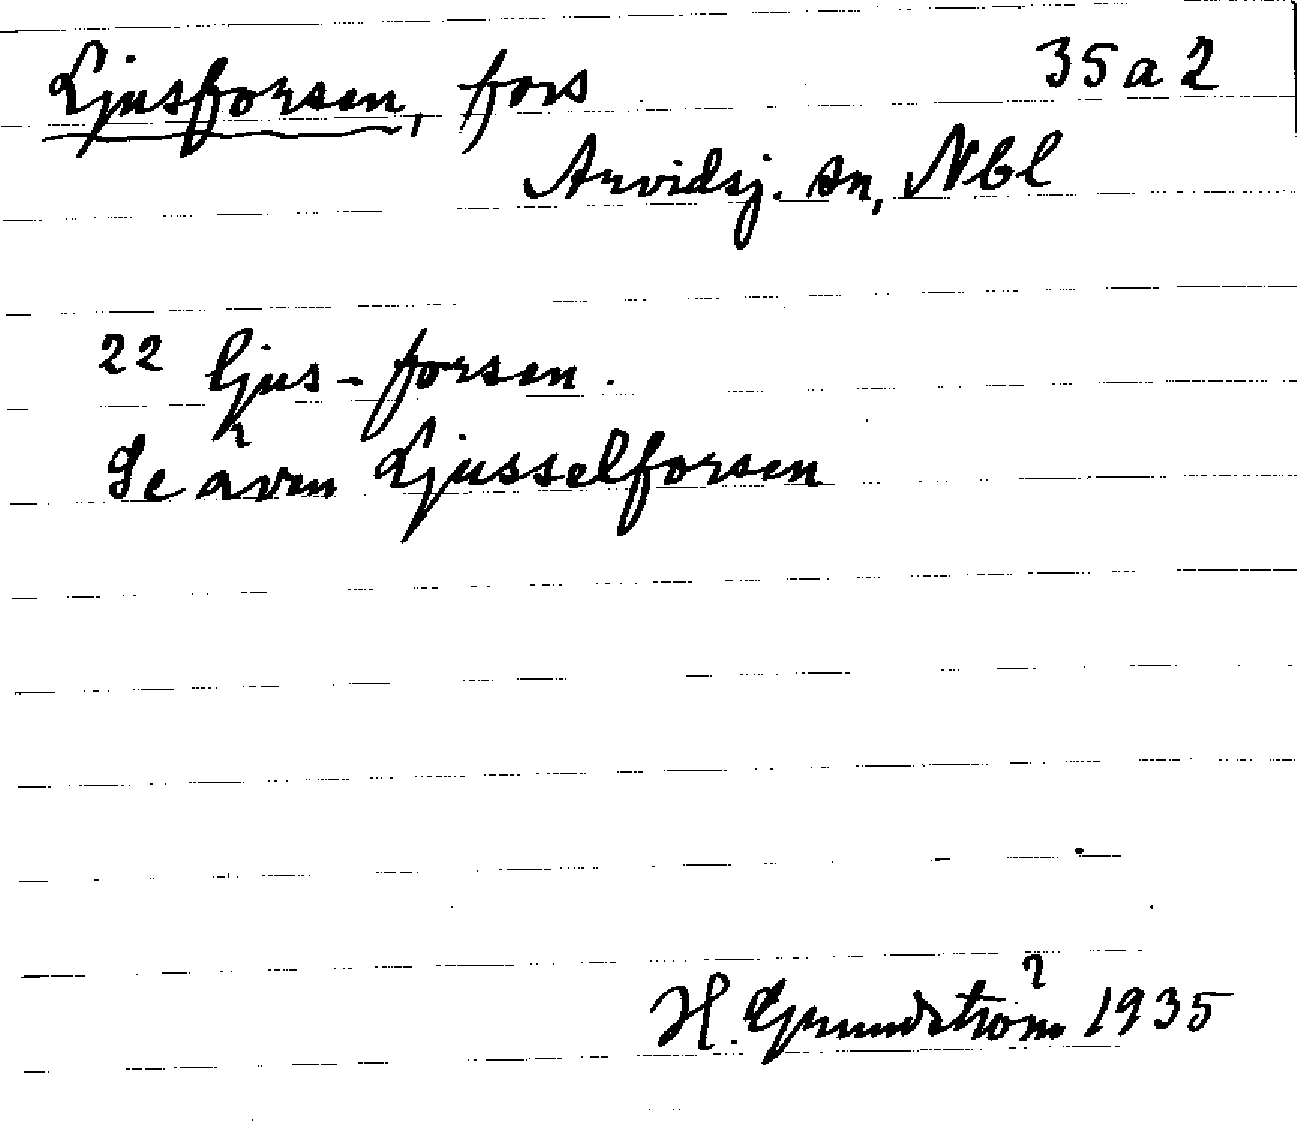 Ljusforsen, fors 35 a 2
Arvidsj. sn, Nbl
22 ljus-forsen.
Se även Ljusselforsen
H. Grundström 1935